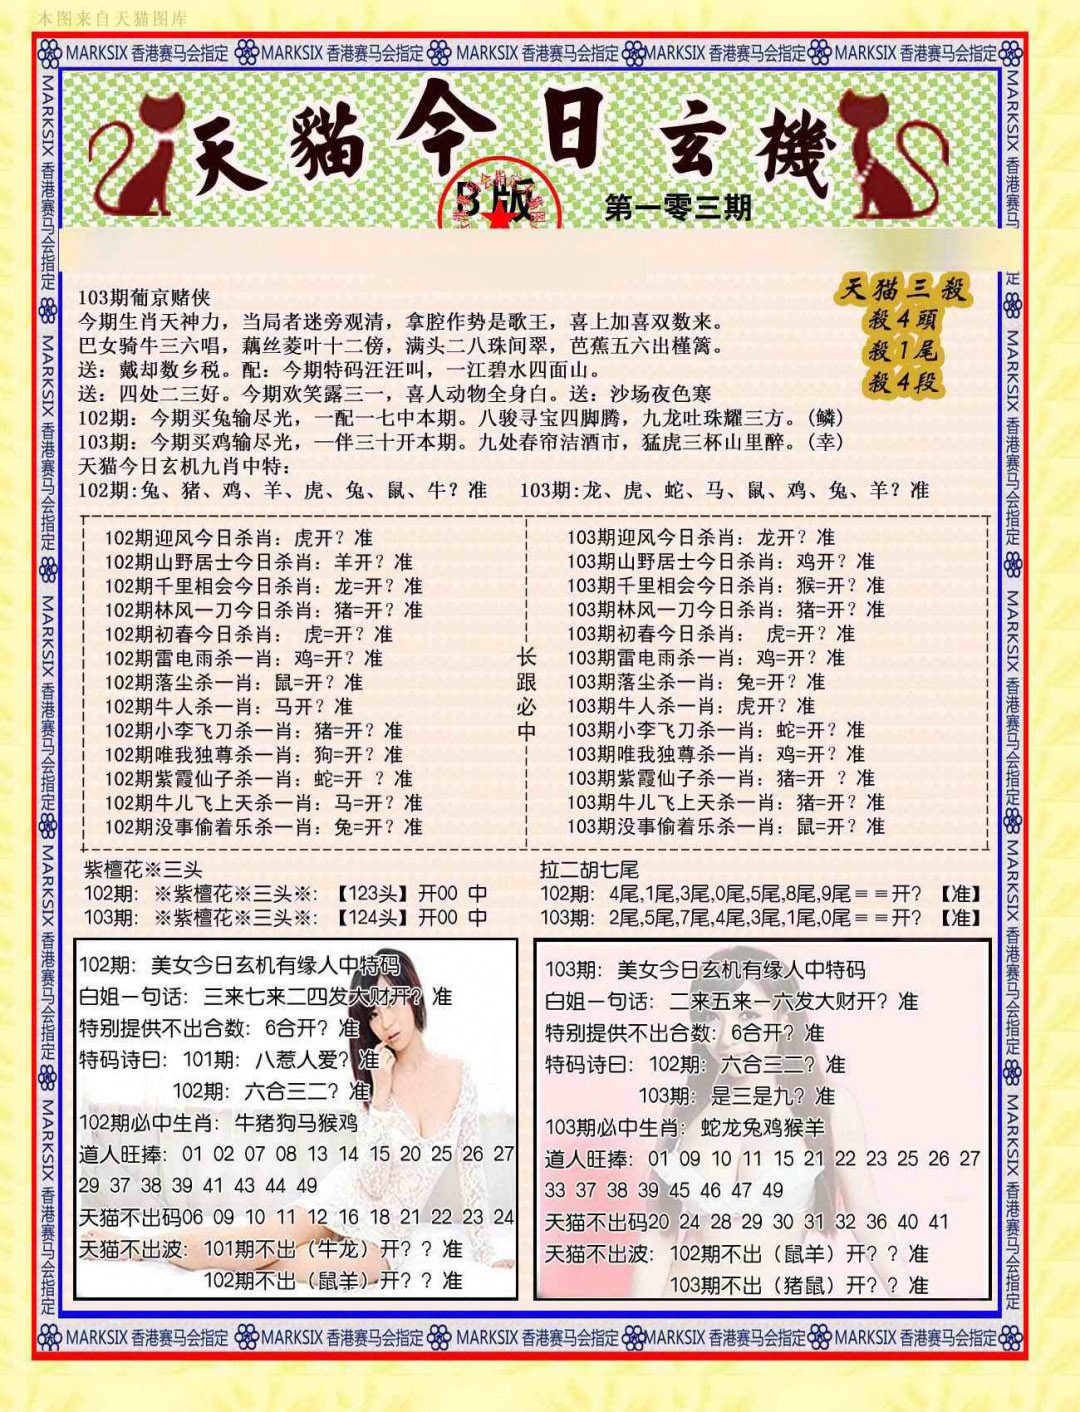 本图来自天猫图库
MARKSIX 香港赛马会指定 MARKSIX 香港赛马会指定 MARKSIX 香港赛马会指定 MARKSIX 香港赛马会指定 MARKSIX 香港赛马会指定
天貓今日玄機
B版
第一零三期
天猫三殺
殺4頭
殺1尾
殺4段
103期葡京赌侠
今期生肖天神力，当局者迷旁观清，拿腔作势是歌王，喜上加喜双数来。
巴女骑牛三六唱，藕丝菱叶十二傍，满头二八珠间翠，芭蕉五六出槿篱。
送：戴却数乡税。配：今期特码汪汪叫，一江碧水四面山。
送：四处二三好。今期欢笑露三一，喜人动物全身白。送：沙场夜色寒
102期：今期买兔输尽光，一配一七中本期。八骏寻宝四脚腾，九龙吐珠耀三方。(鳞)
103期：今期买鸡输尽光，一伴三十开本期。九处春帘洁酒市，猛虎三杯山里醉。(幸)
天猫今日玄机九肖中特：
102期:兔、猪、鸡、羊、虎、兔、鼠、牛？准 103期:龙、虎、蛇、马、鼠、鸡、兔、羊？准
102期迎风今日杀肖：虎开？准
102期山野居士今日杀肖：羊开？准
102期千里相会今日杀肖：龙=开？准
102期林风一刀今日杀肖：猪=开？准
102期初春今日杀肖： 虎=开？准
102期雷电雨杀一肖：鸡=开？准
102期落尘杀一肖：鼠=开？准
102期牛人杀一肖：马开？准
102期小李飞刀杀一肖：猪=开？准
102期唯我独尊杀一肖：狗=开？准
102期紫霞仙子杀一肖：蛇=开 ？准
102期牛儿飞上天杀一肖：马=开？准
102期没事偷着乐杀一肖：兔=开？准
长跟必中
103期迎风今日杀肖：龙开？准
103期山野居士今日杀肖：鸡开？准
103期千里相会今日杀肖：猴=开？准
103期林风一刀今日杀肖：猪=开？准
103期初春今日杀肖： 虎=开？准
103期雷电雨杀一肖：鸡=开？准
103期落尘杀一肖：兔=开？准
103期牛人杀一肖：虎开？准
103期小李飞刀杀一肖：蛇=开？准
103期唯我独尊杀一肖：鸡=开？准
103期紫霞仙子杀一肖：猪=开 ？准
103期牛儿飞上天杀一肖：猪=开？准
103期没事偷着乐杀一肖：鼠=开？准
紫檀花※三头
102期：※紫檀花※三头※：【123头】开00 中
103期：※紫檀花※三头※：【124头】开00 中
拉二胡七尾
102期：4尾,1尾,3尾,0尾,5尾,8尾,9尾＝＝开？【准】
103期：2尾,5尾,7尾,4尾,3尾,1尾,0尾＝＝开？【准】
102期：美女今日玄机有缘人中特码
白姐一句话：三来七来二四发大财开？准
特别提供不出合数：6合开？准
特码诗曰：101期：八惹人爱？准
102期：六合三二？准
102期必中生肖：牛猪狗马猴鸡
道人旺捧：01 02 07 08 13 14 15 20 25 26 27
29 37 38 39 41 43 44 49
天猫不出码06 09 10 11 12 16 18 21 22 23 24
天猫不出波：101期不出（牛龙）开？？准
102期不出（鼠羊）开？？准
103期：美女今日玄机有缘人中特码
白姐一句话：二来五来一六发大财开？准
特别提供不出合数：6合开？准
特码诗曰：102期：六合三二？准
103期：是三是九？准
103期必中生肖：蛇龙兔鸡猴羊
道人旺捧：01 09 10 11 15 21 22 23 25 26 27
33 37 38 39 45 46 47 49
天猫不出码20 24 28 29 30 31 32 36 40 41
天猫不出波：102期不出（鼠羊）开？？准
103期不出（猪鼠）开？？准
MARKSIX 香港赛马会指定 MARKSIX 香港赛马会指定 MARKSIX 香港赛马会指定 MARKSIX 香港赛马会指定 MARKSIX 香港赛马会指定
MARKSIX 香港赛马会指定 MARKSIX 香港赛马会指定 MARKSIX 香港赛马会指定 MARKSIX 香港赛马会指定 MARKSIX 香港赛马会指定